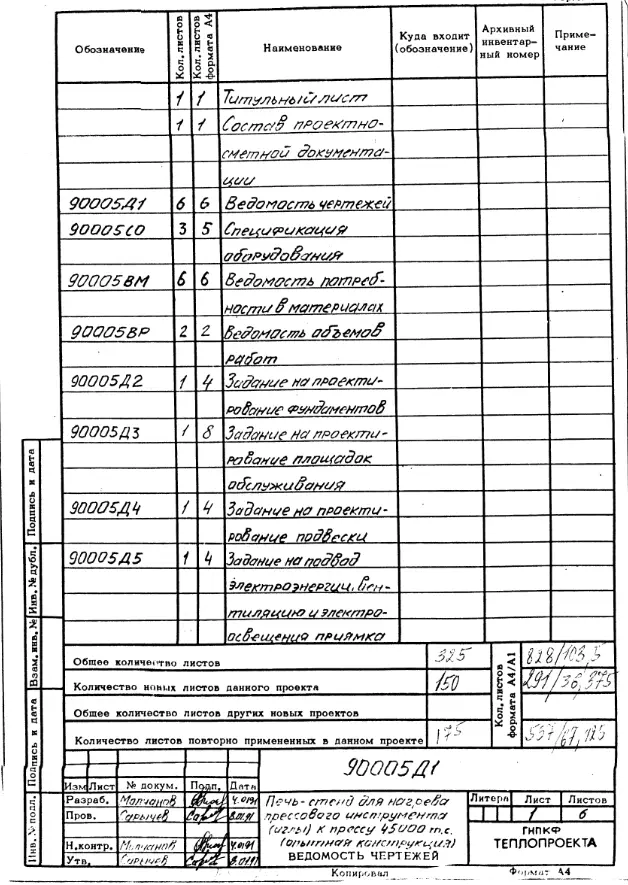 Обозначение Кол. листов Кол. листов формата А4 Наименование Куда входит (обозначение) Архивный инвентар- ный номер Приме- чание
1 1 Титульный лист
1 1 Состав проектно-
сметной документа-
ции
90005Д1 6 6 Ведомость чертежей
90005СО 3 5 Спецификация
оборудования
90005ВМ 6 6 Ведомость потреб-
ности в материалах
90005ВР 2 2 Ведомость объемов
работ
90005Д2 1 4 Задание на проекти-
рование фундаментов
90005Д3 1 8 Задание на проекти-
рование площадок
обслуживания
90005Д4 1 4 Задание на проекти-
рование подвески
90005Д5 1 4 Задание на подвод
электроэнергии, вен-
тиляцию и электро-
освещения приямка
Общее количество листов 325
Количество новых листов данного проекта 150
Общее количество листов других новых проектов
Количество листов повторно примененных в данном проекте 175
Кол. листов формата А4/А1
828/103,5
291/36,375
537/67,125
Подпись и дата
Инв. № дубл.
Взам. инв. №
Подпись и дата
Инв. № подл.
90005Д1
Изм Лист № докум. Подп. Дата
Разраб. Молчанов 4.01.91
Пров. Сарычев 8.01.91
Н.контр. Молчанов 4.01.91
Утв. Сарычев 8.01.91
Печь-стенд для нагрева
прессового инструмента
(иглы) к прессу 45000 т.с.
(опытная конструкция)
ВЕДОМОСТЬ ЧЕРТЕЖЕЙ
Литера Лист Листов
1 6
ГНПКФ
ТЕПЛОПРОЕКТА
Копировал Формат А4